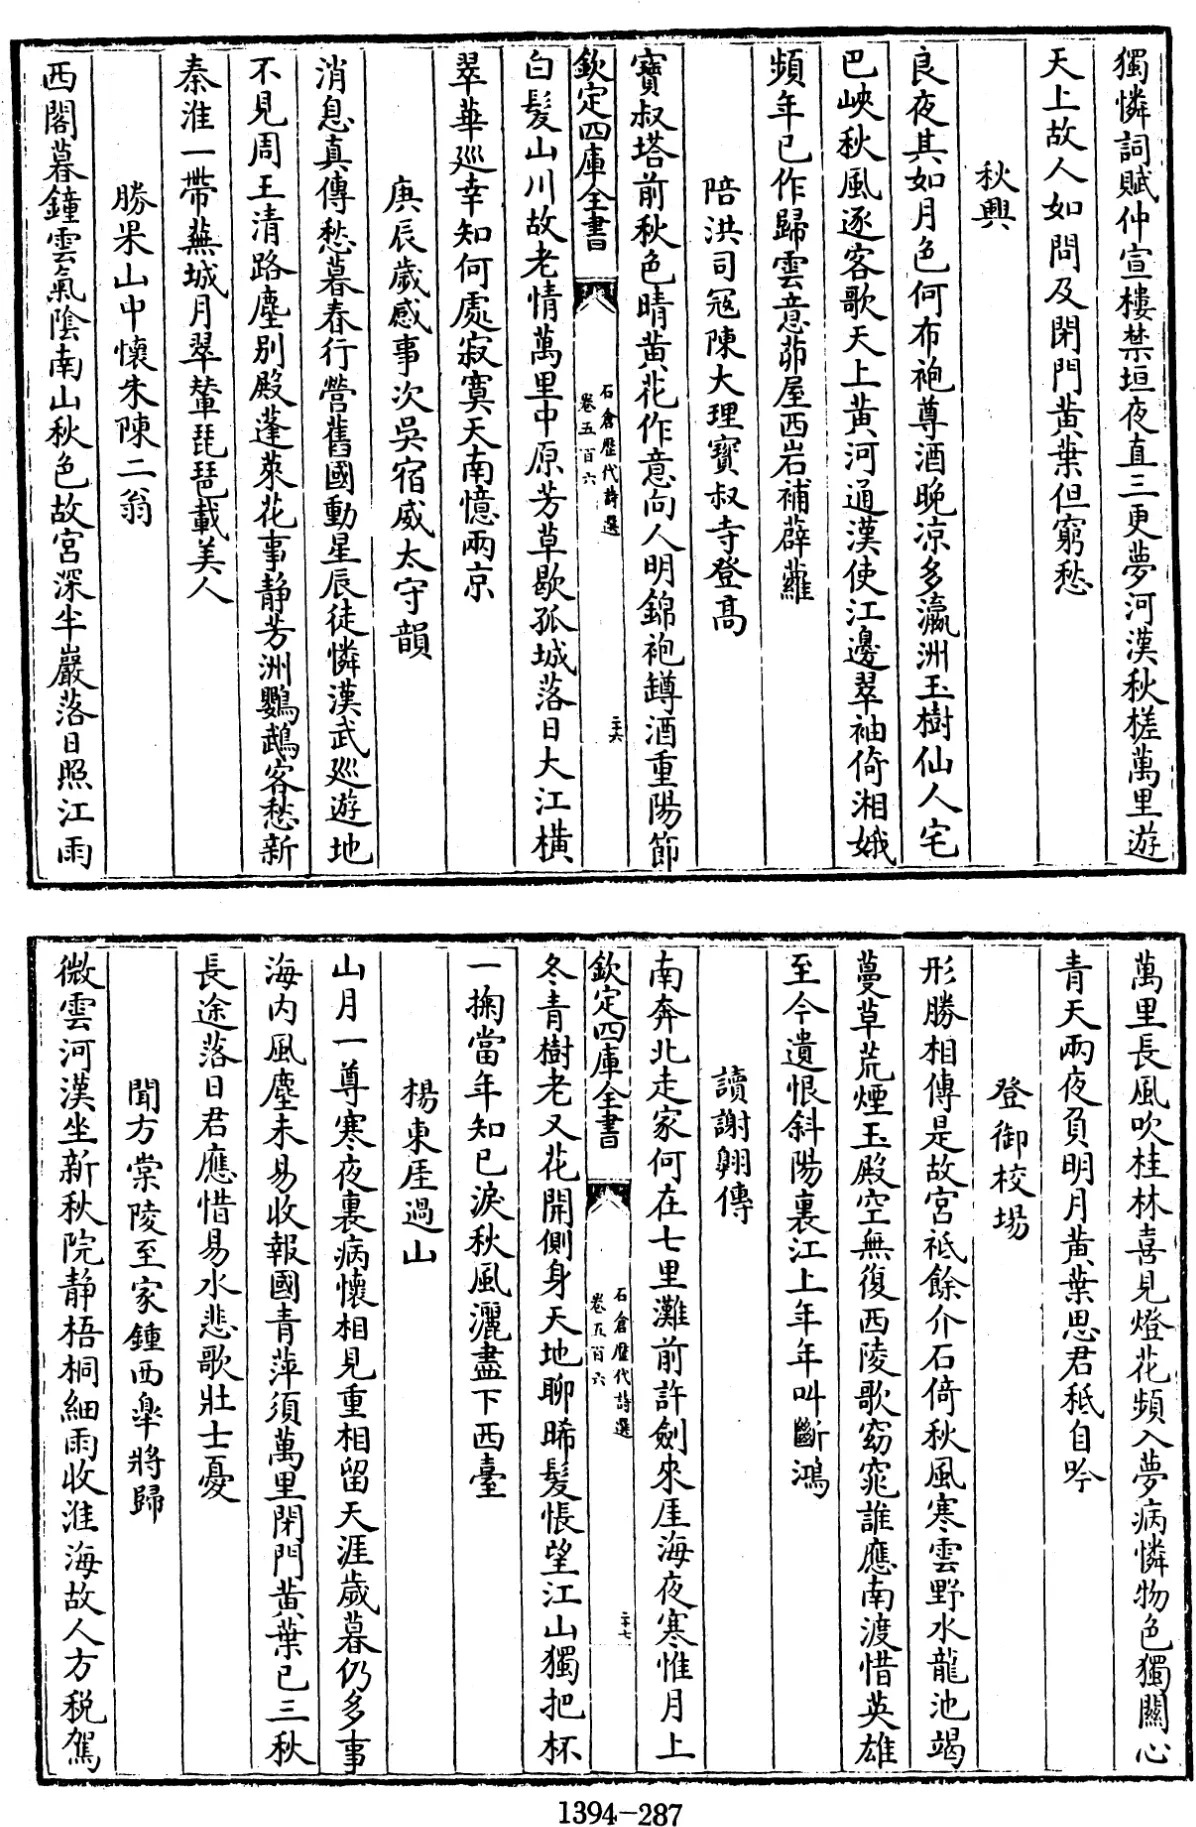 獨憐詞賦仲宣樓禁垣夜直三更夢河漢秋槎萬里遊
天上故人如問及閉門黃葉但窮愁
秋興
良夜其如月色何布袍尊酒晚凉多瀛洲玉樹仙人宅
巴峽秋風逐客歌天上黃河通漢使江邊翠袖倚湘娥
頻年已作歸雲意茆屋西岩補薜蘿
陪洪司冦陳大理寳叔寺登高
寳叔塔前秋色晴黄花作意向人明錦袍罇酒重陽節
欽定四庫全書
石倉歷代詩選
卷五百六
二十六
白髮山川故老情萬里中原芳草歇孤城落日大江橫
翠華廵幸知何處寂寞天南憶兩京
庚辰歲感事次吳宿威太守韻
消息真傳愁暮春行營舊國動星辰徒憐漢武廵遊地
不見周王清路塵别殿蓬萊花事静芳洲鸚鵡客愁新
秦淮一帶蕪城月翠輦琵琶載美人
勝果山中懷朱陳二翁
西閣暮鐘雲氣陰南山秋色故宮深半巖落日照江雨
萬里長風吹桂林喜見燈花頻入夢病憐物色獨關心
青天兩夜負明月黄葉思君秪自吟
登御校場
形勝相傳是故宮祗餘介石倚秋風寒雲野水龍池竭
蔓草荒煙玉殿空無復西陵歌窈窕誰應南渡惜英雄
至今遺恨斜陽裏江上年年叫斷鴻
讀謝翱傳
南奔北走家何在七里灘前許劍來厓海夜寒惟月上
欽定四庫全書
石倉歷代詩選
卷五百六
二十七
冬青樹老又花開側身天地聊晞髮悵望江山獨把杯
一掬當年知已淚秋風灑盡下西臺
楊東厓過山
山月一尊寒夜裏病懷相見重相留天涯歲暮仍多事
海内風塵未易收報國青萍須萬里閉門黄葉已三秋
長途落日君應惜易水悲歌壯士憂
聞方棠陵至家鍾西臯將歸
微雲河漢坐新秋院静梧桐細雨收淮海故人方税駕
1394-287